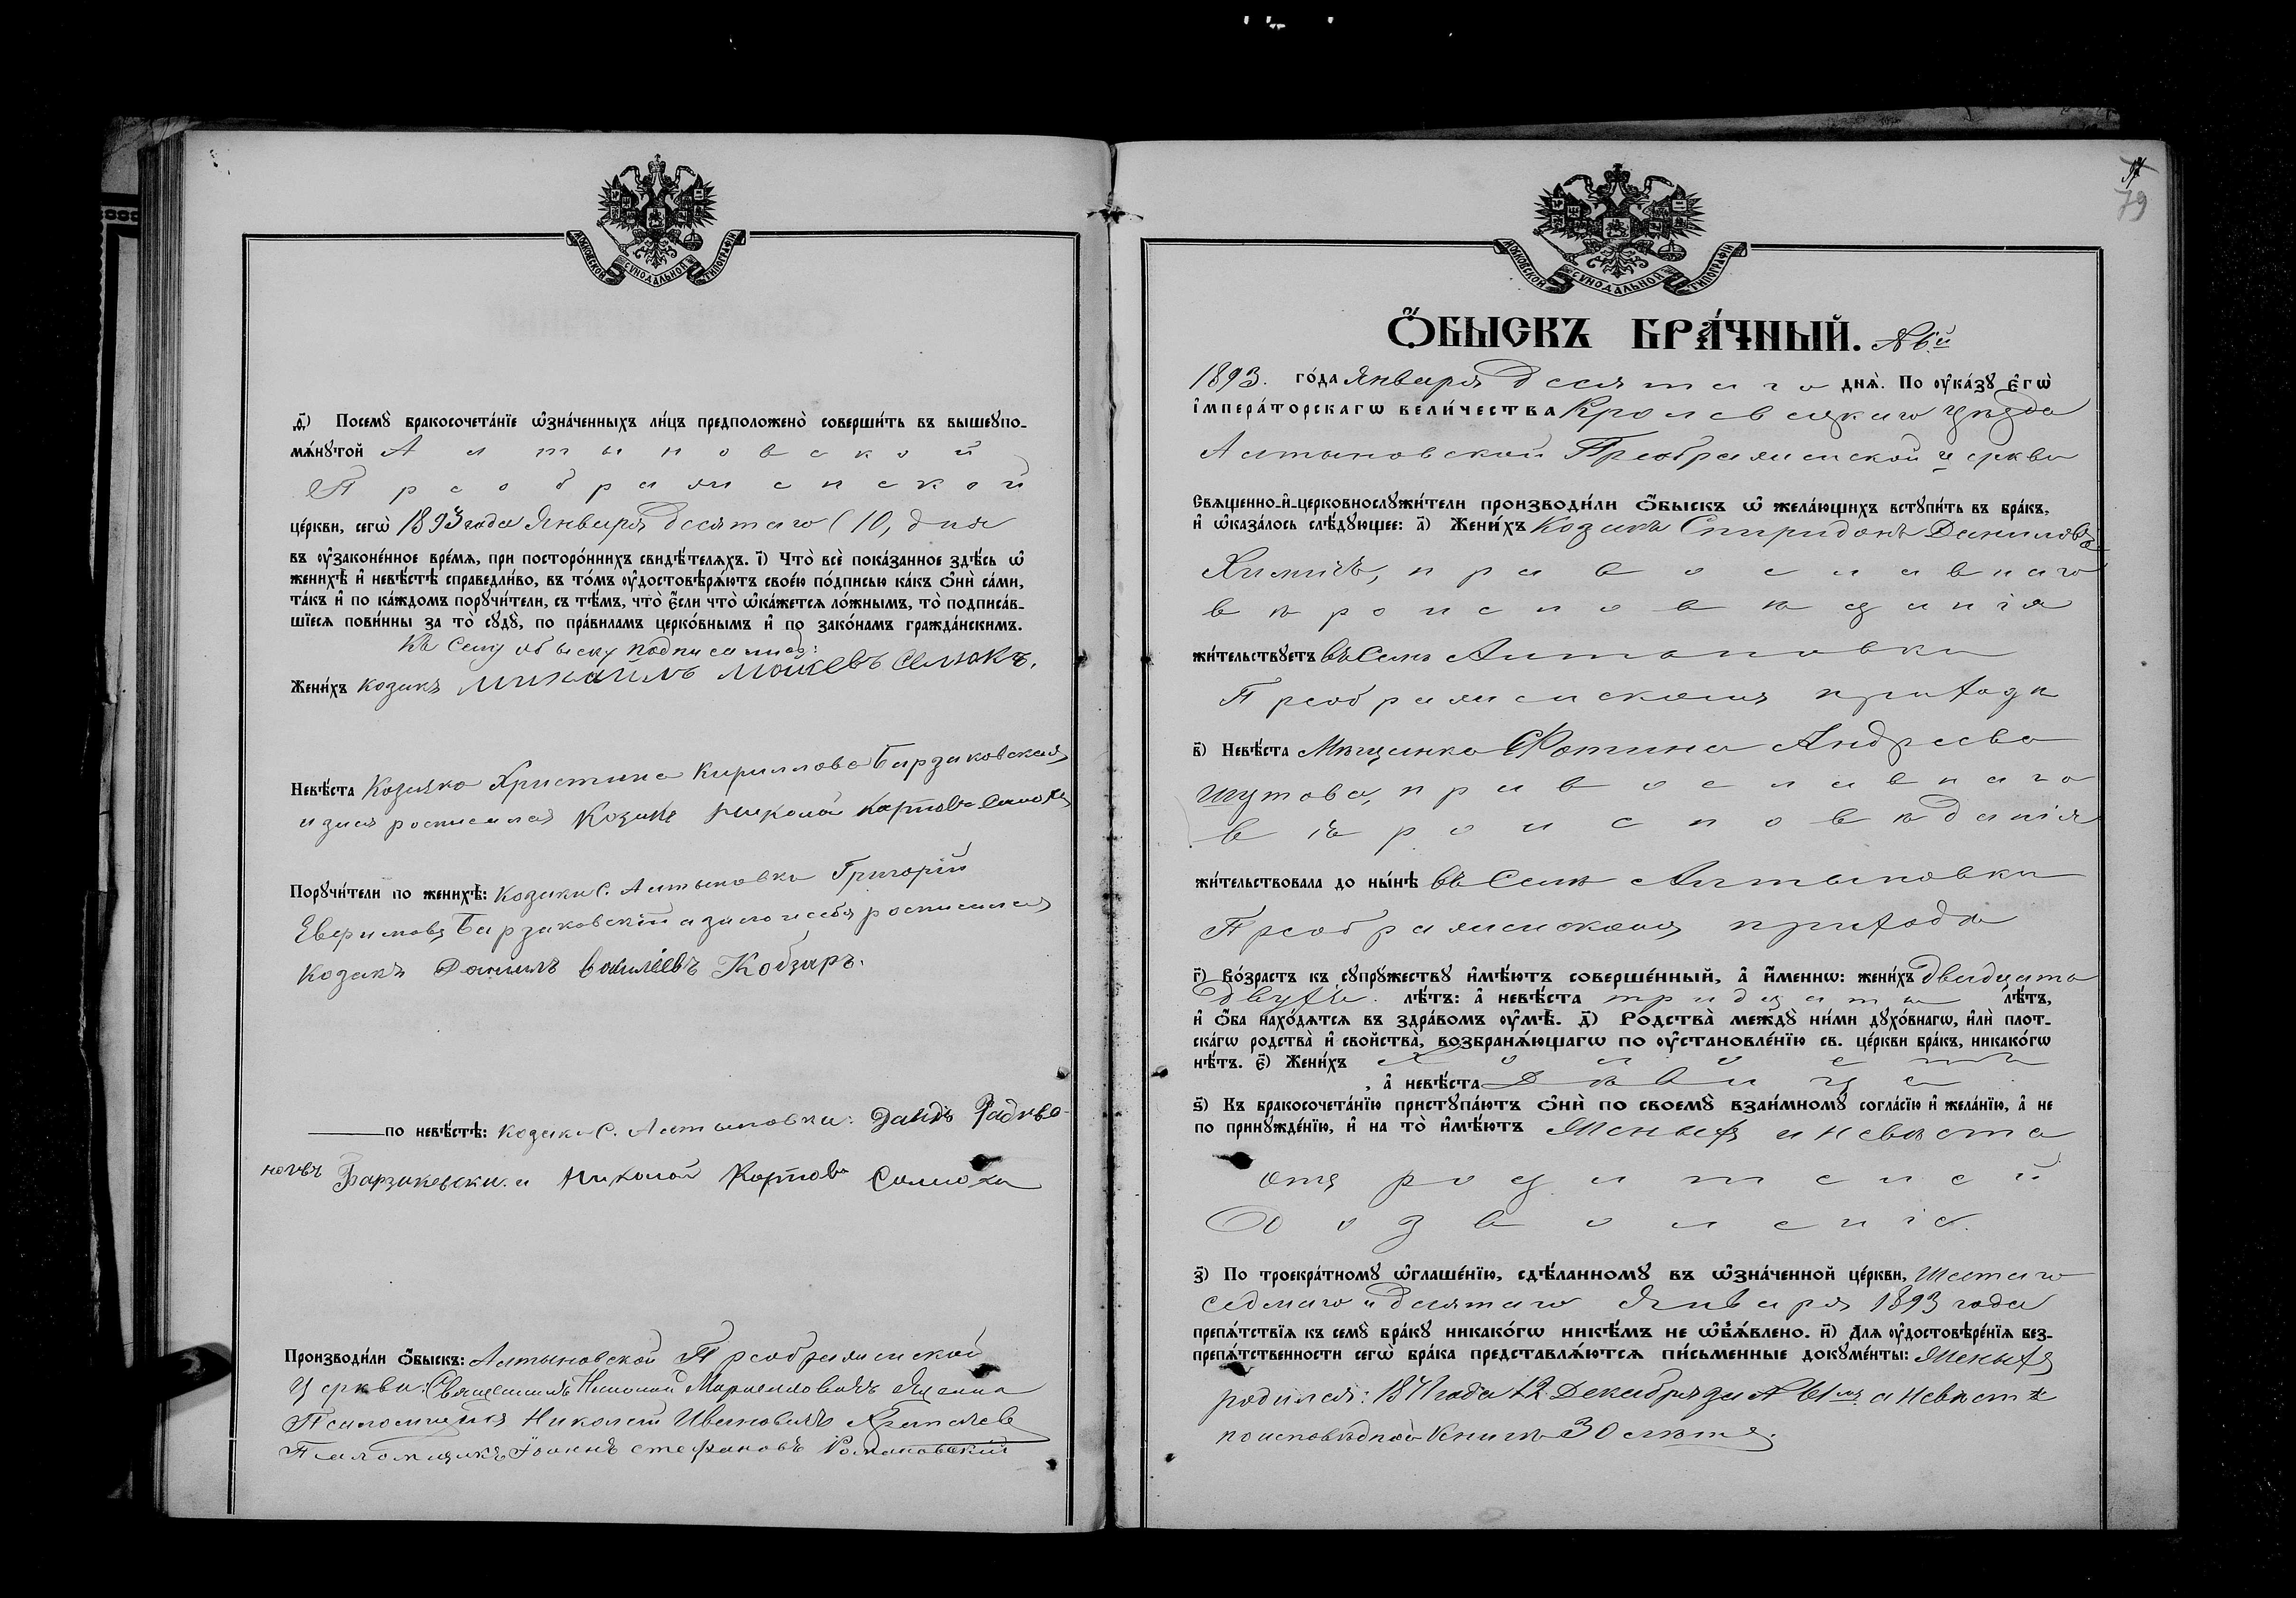 МОСКОВСКОЙ СѴНОДАЛЬНОЙ ТИПОГРАФІИ
д҃) Посемꙋ̀ бракосочета́нїе ѡ҆зна́ченныхъ ли́цъ предположено̀ соверши́ть въ вышеꙋпо-
мѧ́нꙋтой Алтыновской
Преображенской
це́ркви, сегѡ̀ 1893 года Января десятаго (10, дня
въ ᲂу҆законе́нное вре́мѧ, при посторо́ннихъ свидѣ́телѧхъ. і҃) Что̀ всѐ пока́занное здѣ́сь ѡ҆
женихѣ̀ и҆ невѣ́стѣ справедли́во, въ то́мъ ᲂу҆достовѣрѧ́ютъ свое́ю по́дписью ка́къ ѻ҆нѝ са́ми,
та́къ и҆ по ка́ждомъ порꙋчи́тели, съ тѣ́мъ, что̀ є҆́сли что̀ ѡ҆ка́жетсѧ ло́жнымъ, то̀ подписа́в-
шїесѧ пови́нны за то̀ сꙋдꙋ̀, по пра́виламъ церко́внымъ и҆ по зако́намъ гражда́нскимъ.
Къ сему обыску подписались:
Жени́хъ козакъ Михаилъ Моисевъ Селюкъ.
Невѣ́ста Козачка Христина Кириллова Барзаковская
а за нея росписался Козакъ Николай Карповъ Солмоха
Порꙋчи́тели по женихѣ̀: Козаки С. Алтыновки Григорій
Барзаковскій а за него и себя росписался
козакъ Данилъ Василіевъ Кобзаръ.
по невѣ́стѣ: Козаки С. Алтыновки:
Барзаковски. и Николай Карповъ Солмоха
Производи́ли ѻ҆́быскъ: Алтыновской Преображенской
Церкви: Священникъ Николай Яценко
Псаломщикъ Николай Ивановичъ
Псаломщикъ Іоаннъ Стефановъ Романовскій
79
МОСКОВСКОЙ СѴНОДАЛЬНОЙ ТИПОГРАФІИ
Ѻ҆́БЫСКЪ БРА́ЧНЫЙ. № 6й
1893. го́да Января десятаго днѧ̀. По ᲂу҆ка́зꙋ є҆гѡ̀
і҆мпера́торскагѡ вели́чества Кролевецкаго уѣзда
Алтыновской Преображенской церкви
Свѧщенно-и҆-церковнослꙋжи́тели производи́ли ѻ҆́быскъ ѡ҆ жела́ющихъ встꙋпи́ть въ бра́къ,
и҆ ѡ҆каза́лось слѣ́дꙋющее: а҃) Жени́хъ Козакъ Спиридонъ Даниловъ
православнаго
вѣроисповѣданія
жи́тельствꙋетъ въ Селѣ Алтыновки
Преображенскомъ приходѣ
в҃) Невѣ́ста Мѣщанка Фотина Андреева
Шутова, православнаго
вѣроисповѣданія
жи́тельствовала до ны́нѣ въ Селѣ Алтыновки
Преображенскомъ приходѣ
г҃) Во́зрастъ къ сꙋпрꙋ́жествꙋ и҆мѣ́ютъ соверше́нный, а҆ и҆́менно: жени́хъ двадцать
двухъ. лѣ́тъ: а҆ невѣ́ста тридцать лѣ́тъ,
и҆ ѻ҆́ба нахо́дѧтсѧ въ здра́вомъ ᲂу҆мѣ̀. д҃) Родства̀ междꙋ̀ ни́ми дꙋхо́внагѡ, и҆лѝ плот-
ска́гѡ родства̀ и҆ сво́йства, возбранѧ́ющагѡ по ᲂу҆становле́нїю св. це́ркви бра́къ, никако́гѡ
нѣ́тъ. є҃) Жени́хъ холостъ
, а҆ невѣ́ста Дѣвица
ѕ҃) Къ бракосочета́нїю пристꙋпа́ютъ ѻ҆нѝ по своемꙋ̀ взаи́мномꙋ согла́сїю и҆ жела́нїю, а҆ не
по принꙋжде́нїю, и҆ на то̀ и҆мѣ́ютъ Женихъ и невѣста
отъ родителей
Дозволеніе.
з҃) По троекра́тномꙋ ѡ҆глаше́нїю, сдѣ́ланномꙋ въ ѡ҆зна́ченной це́ркви, шестаго
седмаго и десятаго Января 1893 года
препѧ́тствїѧ къ семꙋ̀ бра́кꙋ никако́гѡ никѣ́мъ не ѡ҆б̾ѧ́влено. и҃) Длѧ ᲂу҆достовѣре́нїѧ без-
препѧ́тственности сегѡ̀ бра́ка представлѧ́ютсѧ пи́сьменные докꙋме́нты: Женихъ
родился: года 12 Декабря за № а Невѣстѣ
по исповѣдной Книгѣ 30 лѣтъ.